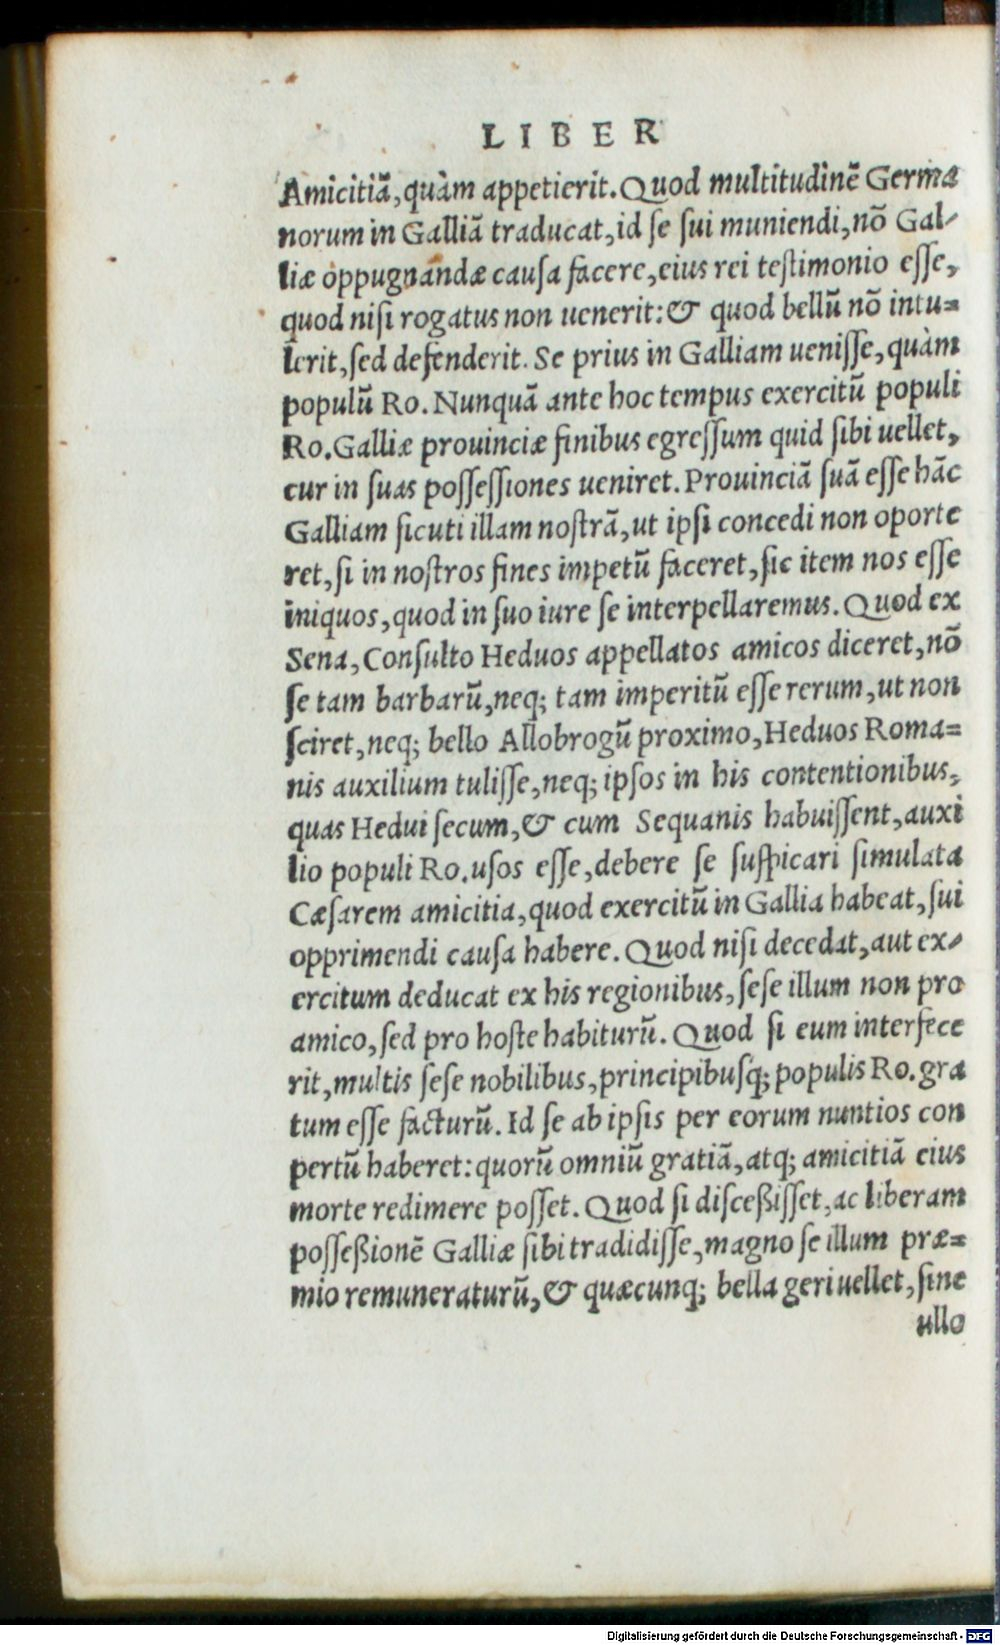 LIBER
Amicitiã, quàm appetierit. Quod multitudinẽ Germa
norum in Galliã traducat, id se sui muniendi, nõ Gal-
liæ oppugnandæ causa facere, eius rei testimonio esse,
quod nisi rogatus non uenerit: & quod bellũ nõ intu=
lerit, sed defenderit. Se prius in Galliam uenisse, quàm
populũ Ro. Nunquã ante hoc tempus exercitũ populi
Ro. Galliæ prouinciæ finibus egressum quid sibi uellet,
cur in suas possessiones ueniret. Prouinciã suã esse hãc
Galliam sicuti illam nostrã, ut ipsi concedi non oporte
ret, si in nostros fines impetũ faceret, sic item nos esse
iniquos, quod in suo iure se interpellaremus. Quod ex
Sena, Consulto Heduos appellatos amicos diceret, nõ
se tam barbarũ, neq; tam imperitũ esse rerum, ut non
sciret, neq; bello Allobrogũ proximo, Heduos Roma=
nis auxilium tulisse, neq; ipsos in his contentionibus,
quas Hedui secum, & cum Sequanis habuissent, auxi
lio populi Ro. usos esse, debere se suspicari simulata
Cæsarem amicitia, quod exercitũ in Gallia habeat, sui
opprimendi causa habere. Quod nisi decedat, aut ex-
ercitum deducat ex his regionibus, sese illum non pro
amico, sed pro hoste habiturũ. Quod si eum interfece
rit, multis sese nobilibus, principibusq́; populis Ro. gra
tum esse facturũ. Id se ab ipsis per eorum nuntios con
pertũ haberet: quorũ omniũ gratiã, atq; amicitiã eius
morte redimere posset. Quod si disceßisset, ac liberam
posseßionẽ Galliæ sibi tradidisse, magno se illum præ=
mio remuneraturũ, & quæcunq; bella geri uellet, sine
ullo
Digitalisierung gefördert durch die Deutsche Forschungsgemeinschaft - DFG